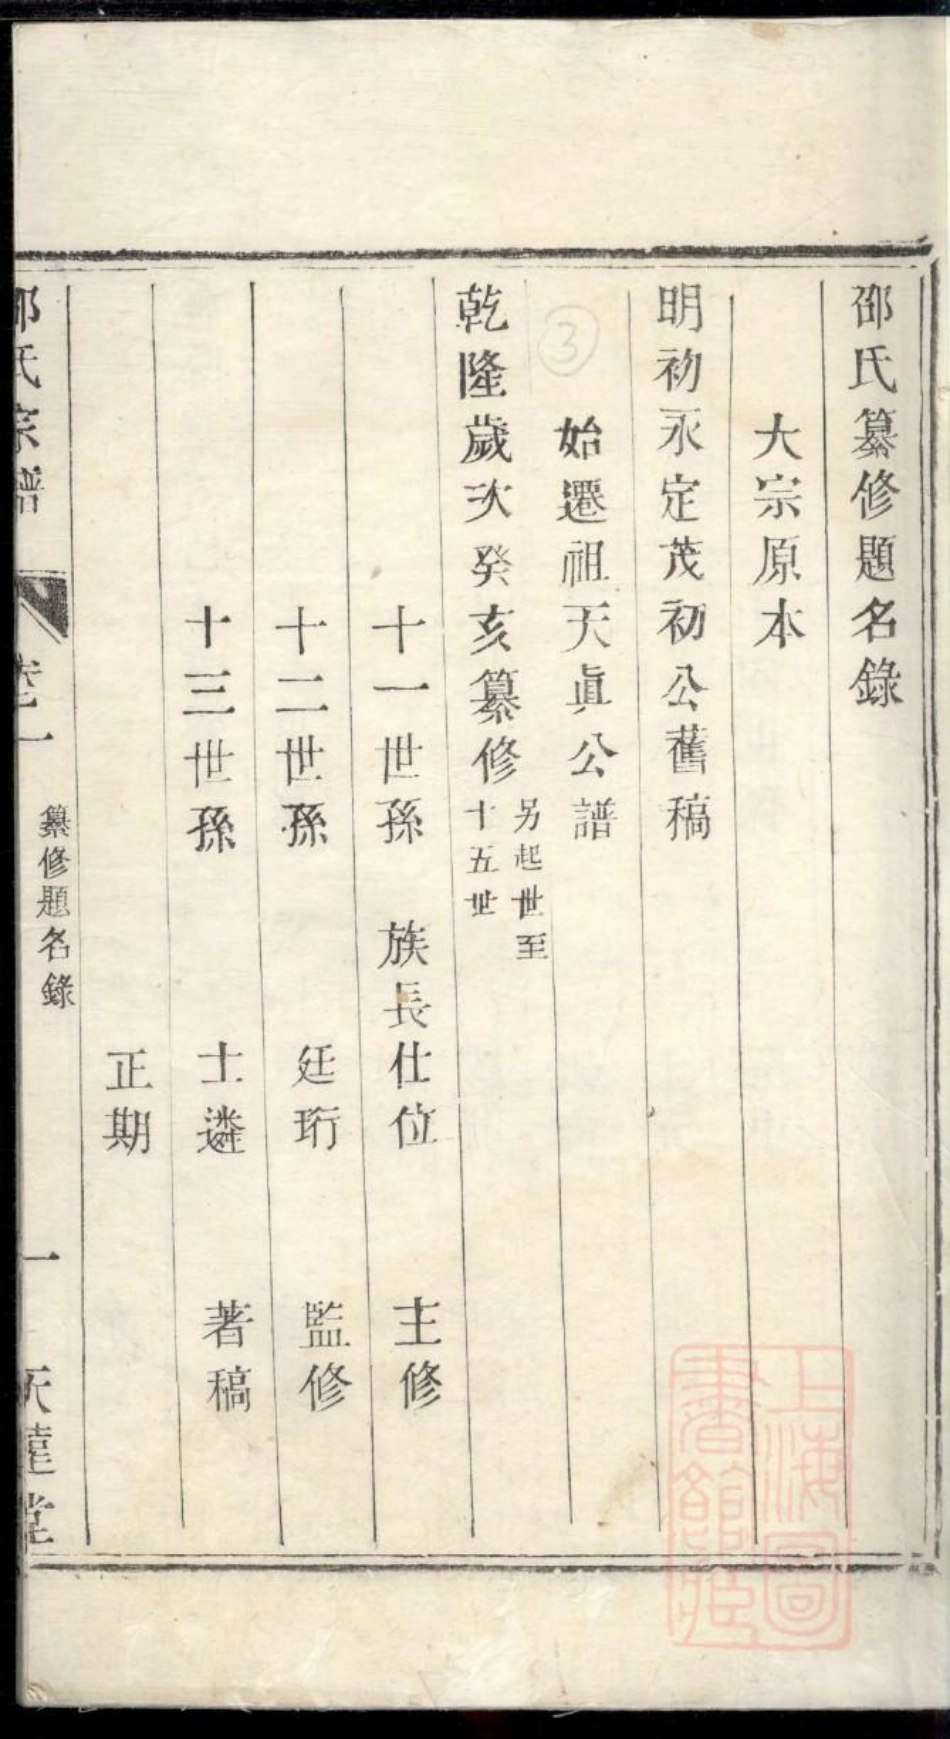 邵氏纂修題名錄
大宗原本
明初永定茂初公舊稿
始遷祖天眞公譜
③
乾隆歲次癸亥纂修
另起世至
十五世
十一世孫 族長仕位 主修
十二世孫 廷珩 監修
十三世孫 士遴 著稿
正期
邵氏宗譜 卷一 纂修題名錄 一 天達堂
上海圖書館藏